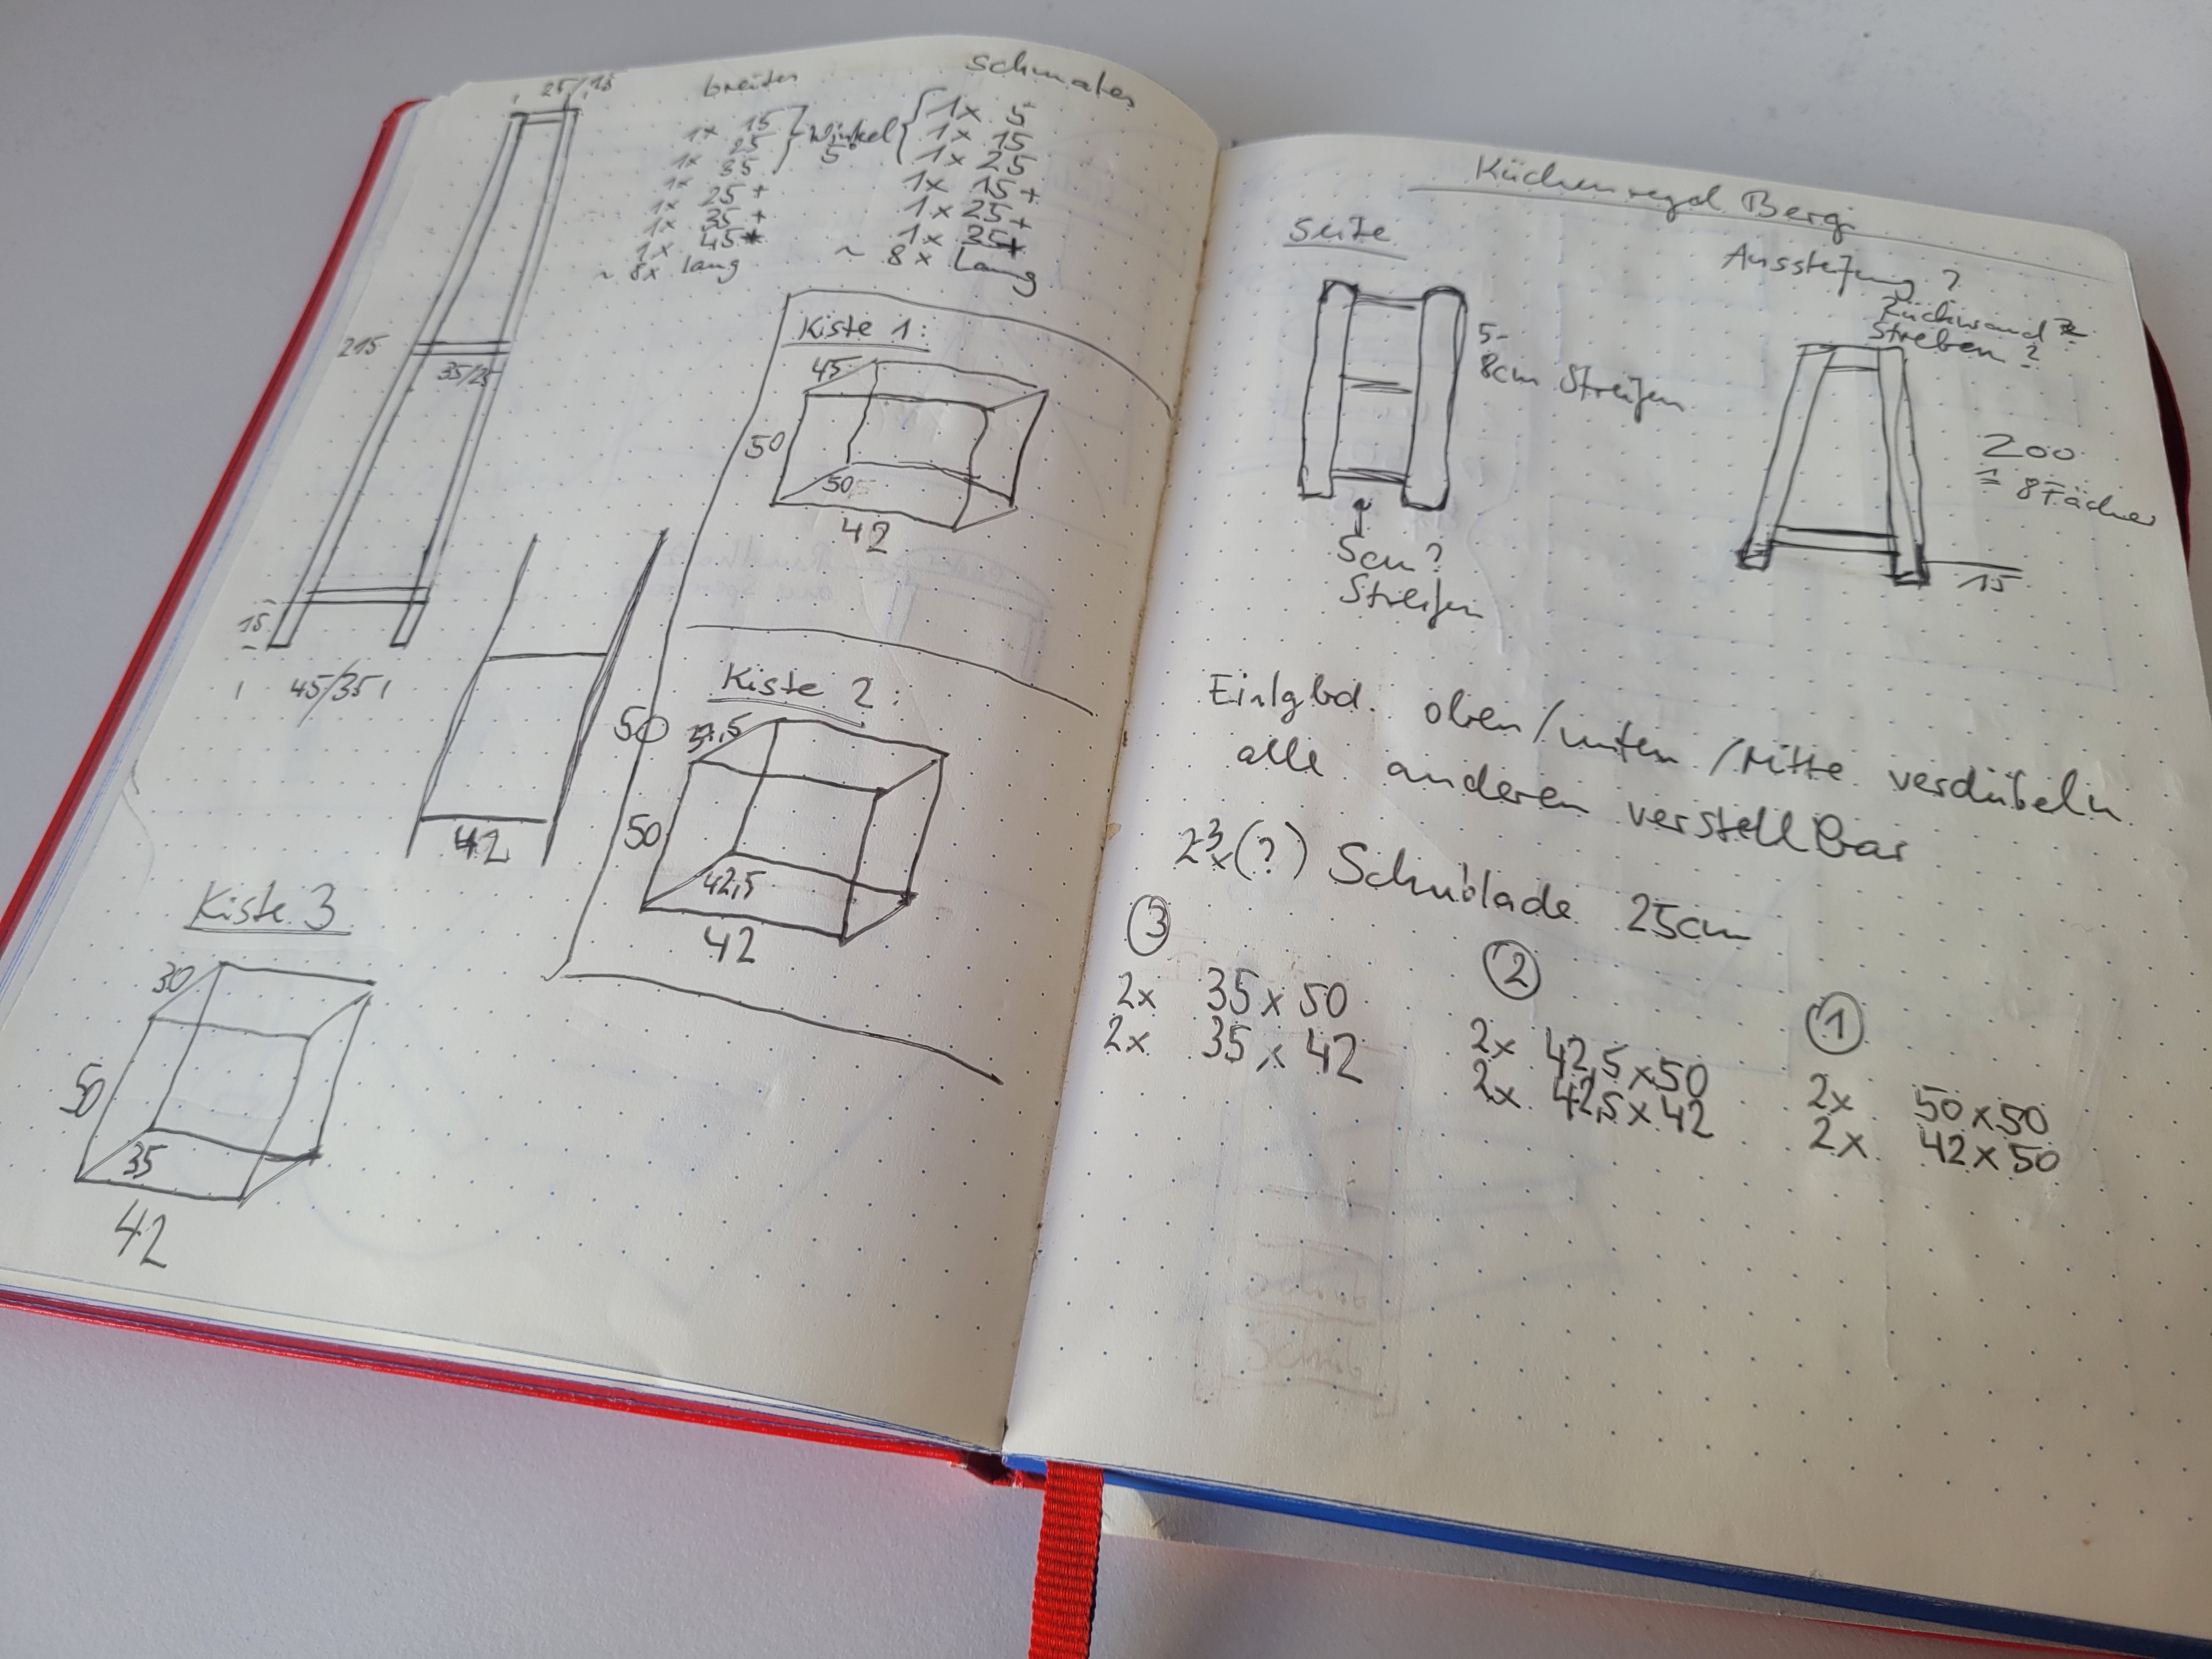 25/15
breites
1x 15
1x 25
1x 35
1x 25+
1x 35+
1x 45+
~ 8x lang
Winkel
5°
schmales
1x 5
1x 15
1x 25
1x 15+
1x 25+
1x 35+
~ 8x Lang
215
35/25
15
45/35
42
Kiste 1:
45
50
50
42
Kiste 2:
50
50
42,5
42
Kiste 3
30
50
35
42
Küchenregal Berg
Seite
5-
8cm Streifen
5cm?
Streifen
Aussteifung?
Rückwand?
Streben?
200
8 Fächer
15
Einlgbd. oben/unten/Mitte verdübeln
alle anderen verstellbar
(?) Schublade 25cm
3
2x 35x50
2x 35x42
2
2x 42,5x50
2x 42,5x42
1
2x 50x50
2x 42x50